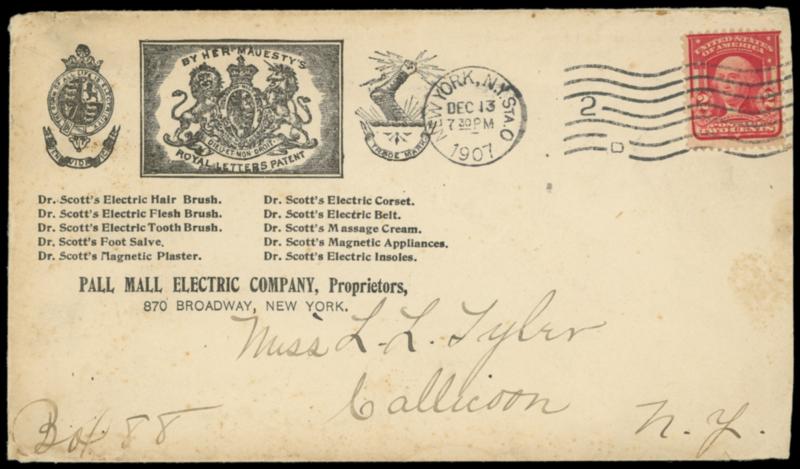 BY HER MAJESTY'S
DIEU ET MON DROIT
ROYAL LETTERS PATENT
TRADE MARK
NEW YORK, N.Y. STA. O
DEC 13
7 30 PM
1907
2
D
UNITED STATES
OF AMERICA
2 2
POSTAGE
TWO CENTS
Dr. Scott's Electric Hair Brush.
Dr. Scott's Electric Flesh Brush.
Dr. Scott's Electric Tooth Brush.
Dr. Scott's Foot Salve.
Dr. Scott's Magnetic Plaster.
Dr. Scott's Electric Corset.
Dr. Scott's Electric Belt.
Dr. Scott's Massage Cream.
Dr. Scott's Magnetic Appliances.
Dr. Scott's Electric Insoles.
PALL MALL ELECTRIC COMPANY, Proprietors,
870 BROADWAY, NEW YORK.
Miss L. L. Tyler
Callicoon
Box 88 N. Y.